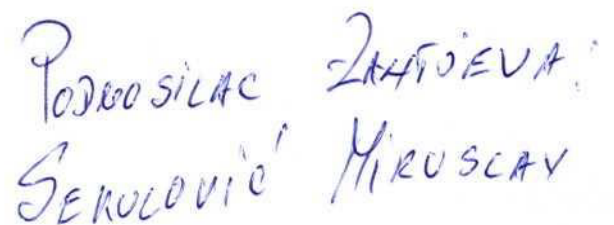 Podnosilac Zahtjeva:
Sekulović Miroslav